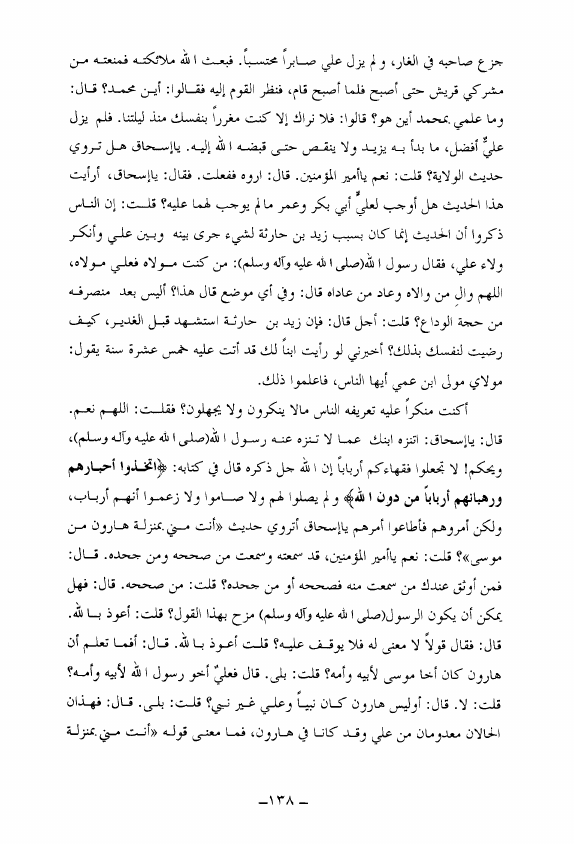 جزع صاحبه في الغار، ولم يزل علي صابراً محتسباً. فبعث الله ملائكته فمنعته من
مشركي قريش حتى أصبح فلما أصبح قام، فنظر القوم إليه فقالوا: أين محمد؟ قال:
وما علمي بمحمد أين هو؟ قالوا: فلا نراك إلا كنت مغرراً بنفسك منذ ليلتنا. فلم يزل
عليٌّ أفضل، ما بدأ به يزيد ولا ينقص حتى قبضه الله إليه. ياإسحاق هل تروي
حديث الولاية؟ قلت: نعم ياأمير المؤمنين. قال: اروه ففعلت. فقال: ياإسحاق، أرأيت
هذا الحديث هل أوجب لعليٌّ أبي بكر وعمر مالم يوجب لهما عليه؟ قلت: إن الناس
ذكروا أن الحديث إنما كان بسبب زيد بن حارثة لشيء جرى بينه وبين علي وأنكر
ولاء علي، فقال رسول الله(صلى الله عليه وآله وسلم): من كنت مولاه فعلي مولاه،
اللهم والِ من والاه وعاد من عاداه قال: وفي أي موضع قال هذا؟ أليس بعد منصرفه
من حجة الوداع؟ قلت: أجل قال: فإن زيد بن حارثة استشهد قبل الغدير، كيف
رضيت لنفسك بذلك؟ أخبرني لو رأيت ابناً لك قد أتت عليه خمس عشرة سنة يقول:
مولاي مولى ابن عمي أيها الناس، فاعلموا ذلك.
أكنت منكراً عليه تعريفه الناس مالا ينكرون ولا يجهلون؟ فقلت: اللهم نعم.
قال: ياإسحاق: اتنزه ابنك عما لا تنزه عنه رسول الله(صلى الله عليه وآله وسلم)،
ويحكم! لا تجعلوا فقهاءكم أرباباً إن الله جل ذكره قال في كتابه: ﴿اتخذوا أحبارهم
ورهبانهم أرباباً من دون الله﴾ ولم يصلوا لهم ولا صاموا ولا زعموا أنهم أرباب،
ولكن أمروهم فأطاعوا أمرهم ياإسحاق أتروي حديث «أنت مني بمنزلة هارون من
موسى»؟ قلت: نعم ياأمير المؤمنين، قد سمعته وسمعت من صححه ومن جحده. قال:
فمن أوثق عندك من سمعت منه فصححه أو من جحده؟ قلت: من صححه. قال: فهل
يمكن أن يكون الرسول(صلى الله عليه وآله وسلم) مزح بهذا القول؟ قلت: أعوذ بالله.
قال: فقال قولاً لا معنى له فلا يوقف عليه؟ قلت أعوذ بالله. قال: أفما تعلم أن
هارون كان أخا موسى لأبيه وأمه؟ قلت: بلى. قال فعليٌ أخو رسول الله لأبيه وأمه؟
قلت: لا. قال: أوليس هارون كان نبياً وعلي غير نبي؟ قلت: بلى. قال: فهذان
الحالان معدومان من علي وقد كانا في هارون، فما معنى قوله «أنت مني بمنزلة
ـ ١٣٨ ـ